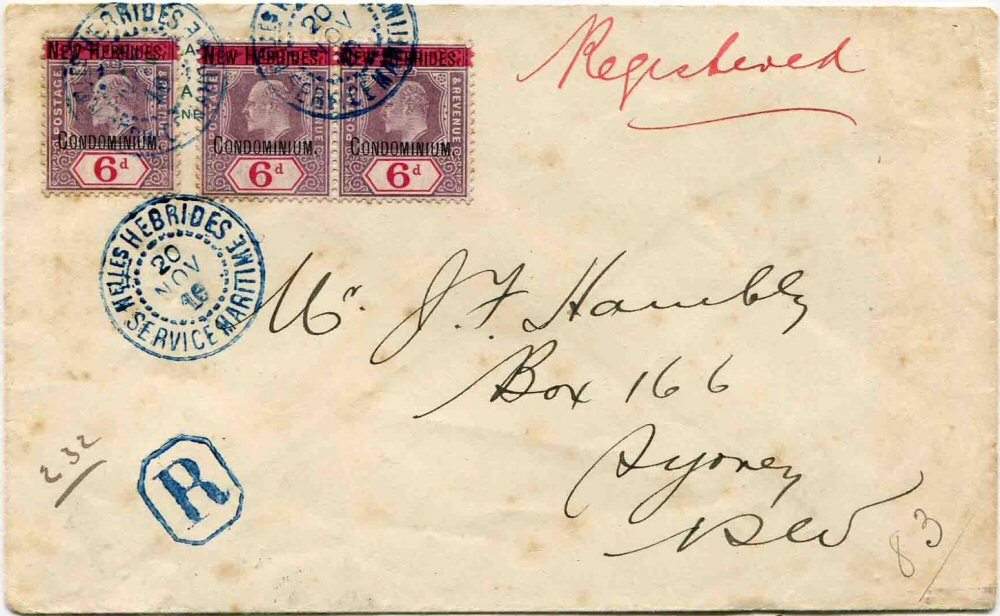 NEW HEBRIDES. NEW HEBRIDES. NEW HEBRIDES.
POSTAGE & REVENUE POSTAGE & REVENUE POSTAGE & REVENUE
CONDOMINIUM. CONDOMINIUM. CONDOMINIUM.
6d 6d 6d
Registered
NELLES HEBRIDES
20
NOV
SERVICE MARITIME
Mr. J. F. Hambly
Box 166
Sydney
NSW
232
R
83